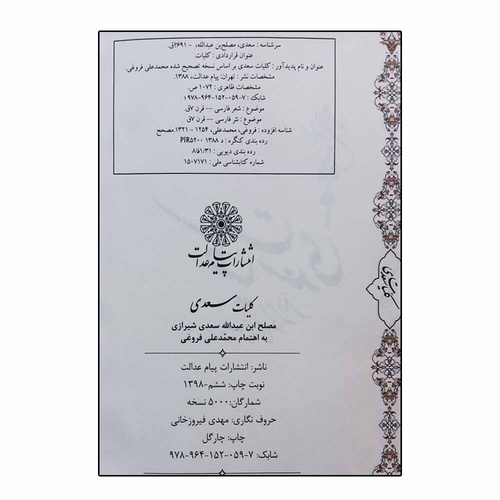 سرشناسه : سعدی، مصلح‌بن عبدالله، - ۶۹۱؟ق.
عنوان قراردادی : کلیات
عنوان و نام پدیدآور : کلیات سعدی بر اساس نسخه تصحیح شده محمدعلی فروغی.
مشخصات نشر : تهران: پیام عدالت، ۱۳۸۸.
مشخصات ظاهری : ۱۰۷۲ ص.
شابک : ۷-۰۵۹-۱۵۲-۹۶۴-۹۷۸
موضوع : شعر فارسی -- قرن ۷ق.
موضوع : نثر فارسی -- قرن ۷ق.
شناسه افزوده : فروغی، محمدعلی، ۱۲۵۴ - ۱۳۲۱.مصحح
رده بندی کنگره : PIR۵۲۰۰ ۱۳۸۸ د
رده بندی دیویی : ۸فا۱/۳۱
شماره کتابشناسی ملی : ۱۵۰۷۱۷۱
انتشارات پیام عدالت
کلیات سعدی
مصلح ابن عبدالله سعدی شیرازی
به اهتمام محمّدعلی فروغی
ناشر: انتشارات پیام عدالت
نوبت چاپ: ششم-۱۳۹۸
شمارگان: ۵۰۰۰ نسخه
حروف نگاری: مهدی فیروزخانی
چاپ: چارگل
شابک: ۷-۰۵۹-۱۵۲-۹۶۴-۹۷۸
کلیات سعدی